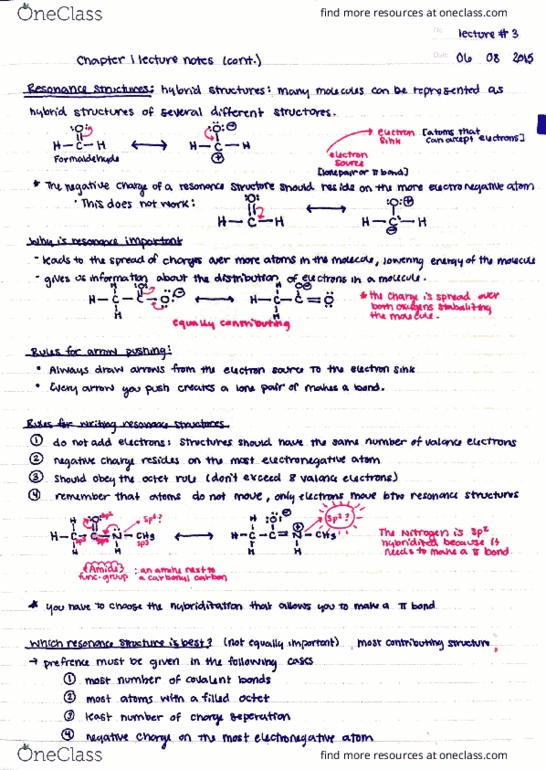 OneClass
find more resources at oneclass.com
No. lecture # 3
Chapter 1 lecture notes (cont.)
Date 06 08 2015
Resonance structures: hybrid structures: many molecules can be represented as
hybrid structures of several different structures.
electron sink [atoms that can accept electrons]
electron source
[lone pair or π bond]
H-C-H
H-C-H
Formaldehyde
* The negative charge of a resonance structure should reside on the more electronegative atom
• This does not work:
H-C-H
H-C-H
Why is resonance important
- leads to the spread of charges over more atoms in the molecule, lowering energy of the molecule
- gives us information about the distribution of electrons in a molecule.
H-C-C-O:
H-C-C=O
equally contributing
* the charge is spread over
both oxygens stabaliting
the molecule.
Rules for arrow pushing:
• Always draw arrows from the electron source to the electron sink
• Every arrow you push creates a lone pair of makes a bond.
Rules for writing resonance structures
① do not add electrons: structures should have the same number of valance electrons
② negative charge resides on the most electronegative atom
③ should obey the octet rule (don't exceed 8 valance electrons)
④ remember that atoms do not move, only electrons move btw resonance structures
H-C-C-N-CH3
sp2
sp3
sp3?
H-C-C=N-CH3
sp2?
The Nitrogen is sp2
hybridited because it
needs to make a π bond
(Amide) : an amine next to
func. group a carbonyl carbon
* you have to choose the hybriditation that allows you to make a π bond
Which resonance structure is best? (not equally important), most contributing structure,
→ prefrence must be given in the following cases
① most number of covalent bonds
② most atoms with a filled octet
③ least number of charge seperation
④ negative charge on the most electronegative atom
OneClass
find more resources at oneclass.com